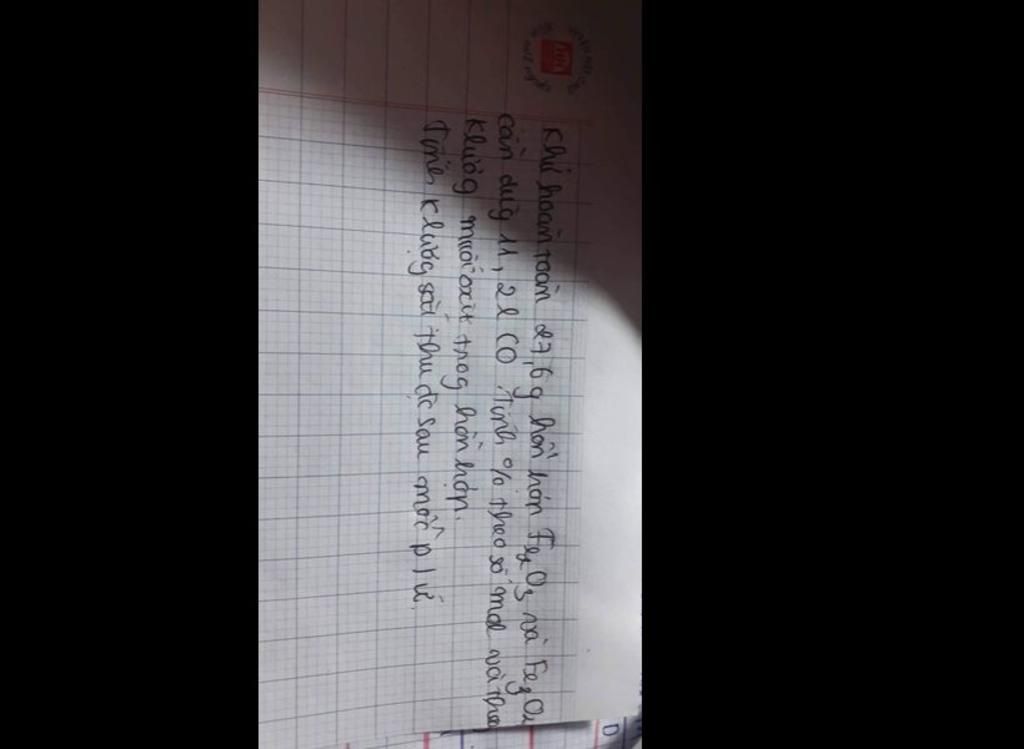 Khử hoàn toàn 27,6g hỗn hợp Fe2O3 và Fe3O4
cần dùg 11,2l CO. Tính % theo số mol và theo
klượg mỗi oxit trog hỗn hợp.
Tính klượg sắt thu đc sau mỗi p/ứ.
D